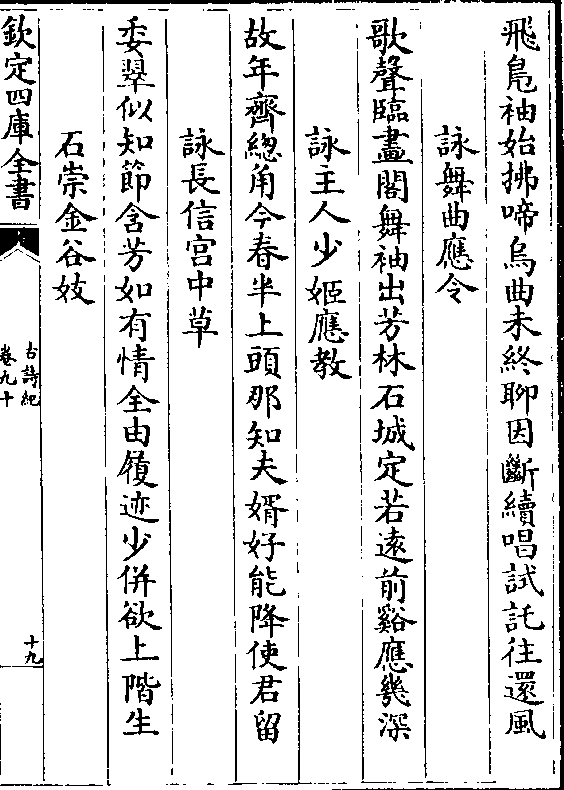 飛鳬袖始拂啼烏曲未終聊因斷續唱試託往還風
詠舞曲應令
歌聲臨畫閣舞袖出芳林石城定若遠前谿應幾深
詠主人少姬應教
故年齊緫角今春半上頭那知夫婿好能降使君留
詠長信宫中草
委翠似知節含芳如有情全由履迹少併欲上階生
石崇金谷妓
欽定四庫全書
古詩紀
卷九十
十九